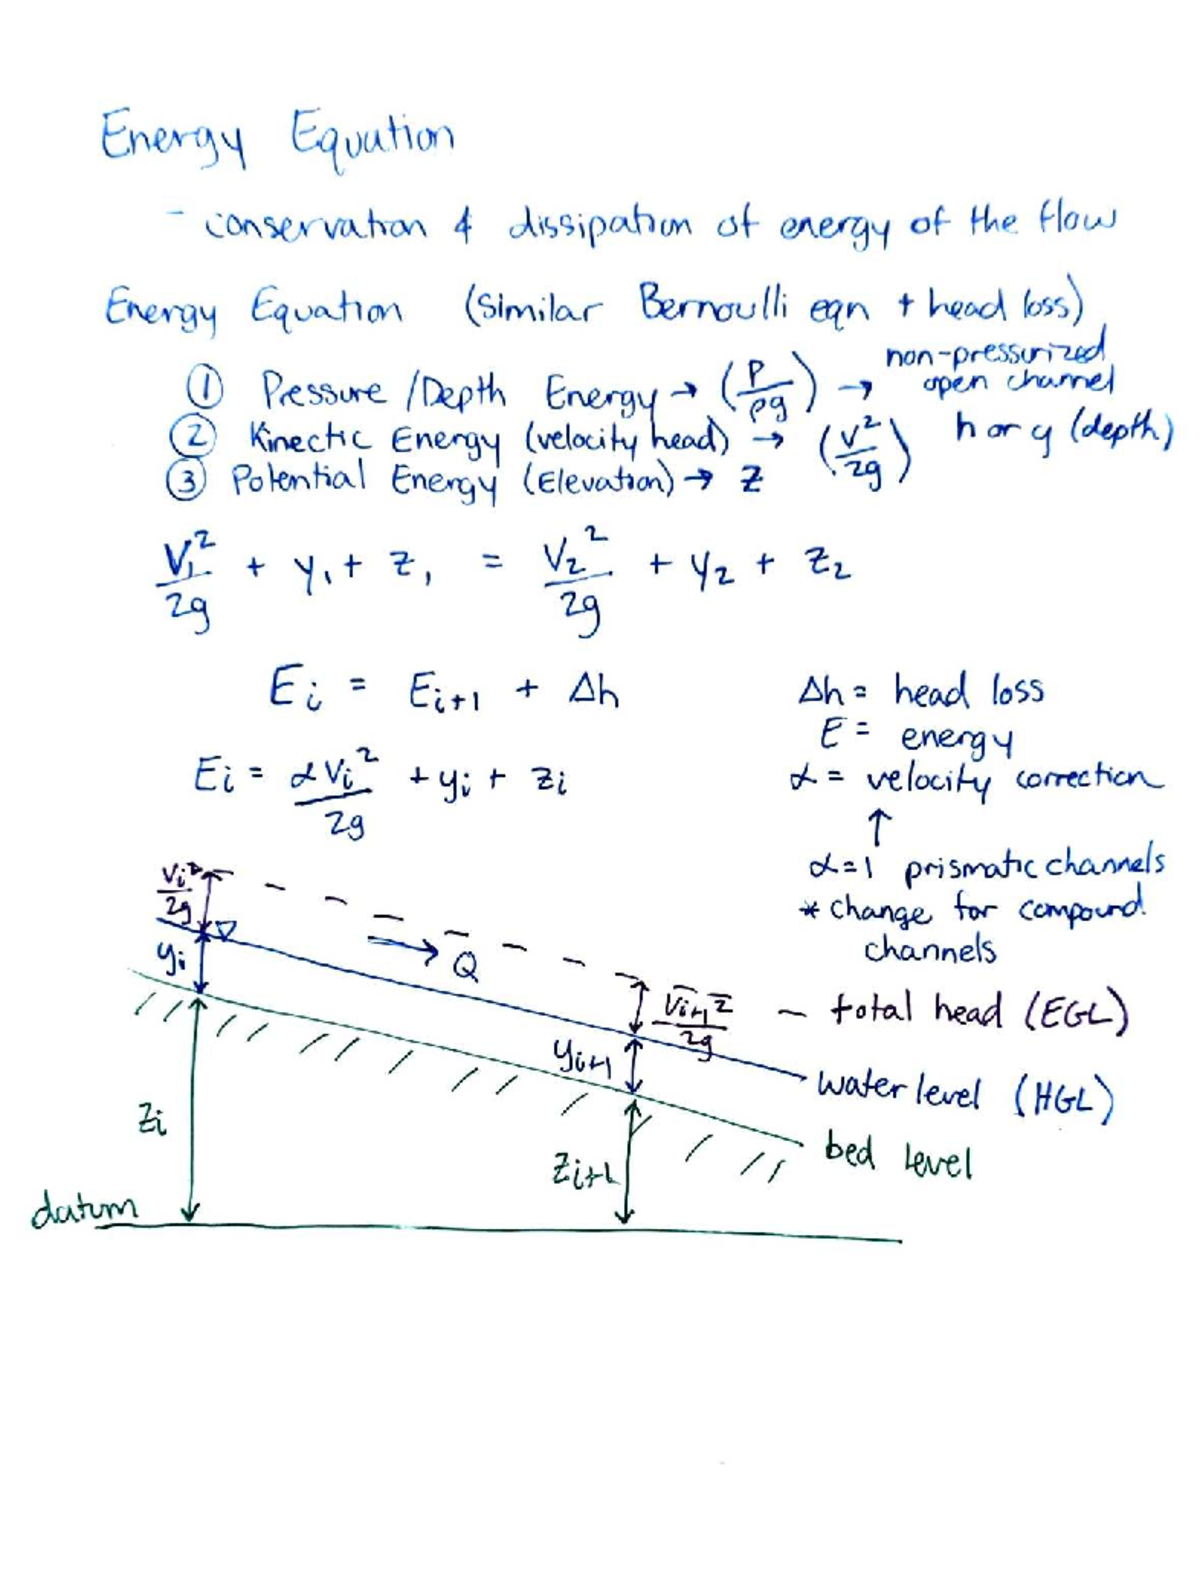 Energy Equation
- conservation & dissipation of energy of the flow
Energy Equation (Similar Bernoulli eqn + head loss)
① Pressure/Depth Energy → (P/ρg) → non-pressurized open channel
h or y (depth)
② Kinectic Energy (velocity head) → (V²/2g)
③ Potential Energy (Elevation) → Z
V₁²/2g + y₁ + z₁ = V₂²/2g + y₂ + z₂
Ei = Ei+1 + Δh
Δh = head loss
E = energy
Ei = αVi²/2g + yi + zi
α = velocity correction
↑
α=1 prismatic channels
* change for compound
channels
Vi²/2g
yi
Q
Vi+1²/2g
– total head (EGL)
yi+1
water level (HGL)
zi
bed level
zi+1
datum